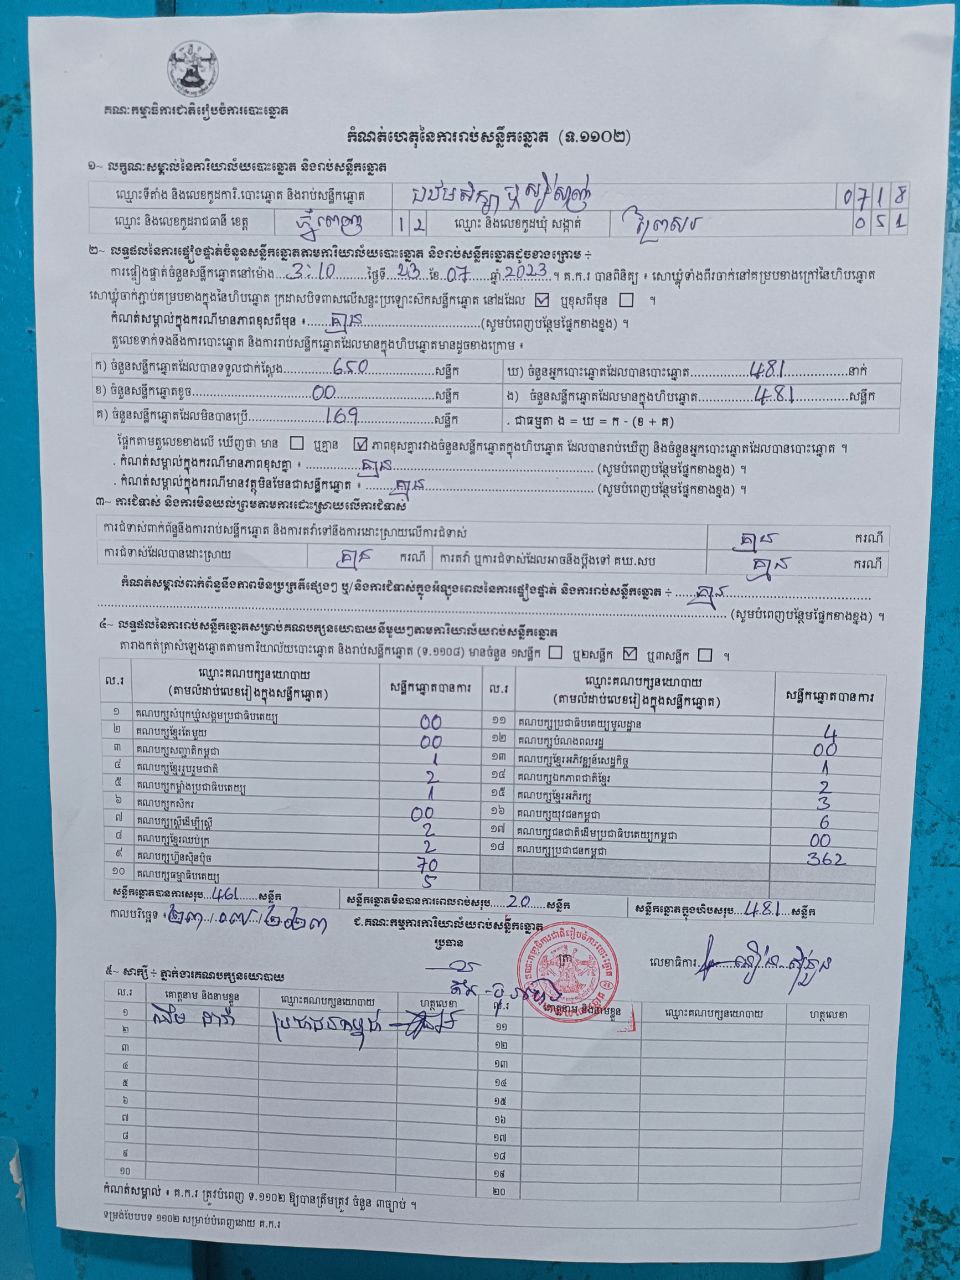 គណៈកម្មាធិការជាតិរៀបចំការបោះឆ្នោត
កំណត់ហេតុនៃការរាប់សន្លឹកឆ្នោត (ទ.១១០២)
១~ លក្ខណៈសម្គាល់នៃការិយាល័យបោះឆ្នោត និងរាប់សន្លឹកឆ្នោត
ឈ្មោះទីតាំង និងលេខកូដការិ.បោះឆ្នោត និងរាប់សន្លឹកឆ្នោត 0718
ឈ្មោះ និងលេខកូដរាជធានី ខេត្ត ភ្នំពេញ 12 ឈ្មោះ និងលេខកូដឃុំ សង្កាត់ ព្រៃស 051
២~ លទ្ធផលនៃការផ្ទៀងផ្ទាត់ចំនួនសន្លឹកឆ្នោតតាមការិយាល័យបោះឆ្នោត និងរាប់សន្លឹកឆ្នោតដូចខាងក្រោម ÷
ការផ្ទៀងផ្ទាត់ចំនួនសន្លឹកឆ្នោតនៅម៉ោង 3:10 ថ្ងៃទី 23 ខែ 07 ឆ្នាំ 2023 ។ គ.ក.រ បានពិនិត្យ ៖ សោឃ្លុំទាំងពីរចាក់នៅគម្របខាងក្រៅនៃហិបឆ្នោត
សោឃ្លុំចាក់ភ្ជាប់គម្របខាងក្នុងនៃហិបឆ្នោត ក្រដាសបិទពាសលើសន្ទះប្រឡោះសិកសន្លឹកឆ្នោត នៅដដែល ☑ ឬខុសពីមុន ☐ ។
កំណត់សម្គាល់ក្នុងករណីមានភាពខុសពីមុន ៖ គ្មាន (សូមបំពេញបន្ថែមផ្នែកខាងខ្នង) ។
តួលេខទាក់ទងនឹងការបោះឆ្នោត និងការរាប់សន្លឹកឆ្នោតដែលមានក្នុងហិបឆ្នោតមានដូចខាងក្រោម ៖
ក) ចំនួនសន្លឹកឆ្នោតដែលបានទទួលជាក់ស្តែង 650 សន្លឹក ឃ) ចំនួនអ្នកបោះឆ្នោតដែលបានបោះឆ្នោត 481 នាក់
ខ) ចំនួនសន្លឹកឆ្នោតខូច 00 សន្លឹក ង) ចំនួនសន្លឹកឆ្នោតដែលមានក្នុងហិបឆ្នោត 481 សន្លឹក
គ) ចំនួនសន្លឹកឆ្នោតដែលមិនបានប្រើ 169 សន្លឹក . ជាធម្មតា ង = ឃ = ក - (ខ + គ)
ផ្អែកតាមតួលេខខាងលើ ឃើញថា មាន ☐ ឬគ្មាន ☑ ភាពខុសគ្នារវាងចំនួនសន្លឹកឆ្នោតក្នុងហិបឆ្នោត ដែលបានរាប់ឃើញ និងចំនួនអ្នកបោះឆ្នោតដែលបានបោះឆ្នោត ។
. កំណត់សម្គាល់ក្នុងករណីមានភាពខុសគ្នា ៖ គ្មាន (សូមបំពេញបន្ថែមផ្នែកខាងខ្នង) ។
. កំណត់សម្គាល់ក្នុងករណីមានវត្ថុមិនមែនជាសន្លឹកឆ្នោត ៖ គ្មាន (សូមបំពេញបន្ថែមផ្នែកខាងខ្នង) ។
៣~ ការជំទាស់ និងការមិនយល់ព្រមតាមការដោះស្រាយលើការជំទាស់
ការជំទាស់ពាក់ព័ន្ធនឹងការរាប់សន្លឹកឆ្នោត និងការតវ៉ាទៅនឹងការដោះស្រាយលើការជំទាស់ គ្មាន ករណី
ការជំទាស់ដែលបានដោះស្រាយ គ្មាន ករណី ការតវ៉ា ឬការជំទាស់ដែលអាចនឹងប្តឹងទៅ គឃ.សប គ្មាន ករណី
កំណត់សម្គាល់ពាក់ព័ន្ធនឹងភាពមិនប្រក្រតីផ្សេងៗ ឬ/និងការជំទាស់ក្នុងអំឡុងពេលនៃការផ្ទៀងផ្ទាត់ និងការរាប់សន្លឹកឆ្នោត ÷ គ្មាន
(សូមបំពេញបន្ថែមផ្នែកខាងខ្នង) ។
៤~ លទ្ធផលនៃការរាប់សន្លឹកឆ្នោតសម្រាប់គណបក្សនយោបាយនីមួយៗតាមការិយាល័យរាប់សន្លឹកឆ្នោត
តារាងកត់ត្រាសំឡេងឆ្នោតតាមការិយាល័យបោះឆ្នោត និងរាប់សន្លឹកឆ្នោត (ទ.១១០៨) មានចំនួន ១សន្លឹក ☐ ឬ២សន្លឹក ☑ ឬ៣សន្លឹក ☐ ។
ល.រ ឈ្មោះគណបក្សនយោបាយ (តាមលំដាប់លេខរៀងក្នុងសន្លឹកឆ្នោត) សន្លឹកឆ្នោតបានការ ល.រ ឈ្មោះគណបក្សនយោបាយ (តាមលំដាប់លេខរៀងក្នុងសន្លឹកឆ្នោត) សន្លឹកឆ្នោតបានការ
១ គណបក្សសំបុកឃ្មុំសង្គមប្រជាធិបតេយ្យ 00 ១១ គណបក្សប្រជាធិបតេយ្យមូលដ្ឋាន 4
២ គណបក្សខ្មែរតែមួយ 00 ១២ គណបក្សបំណងពលរដ្ឋ 00
៣ គណបក្សសញ្ជាតិកម្ពុជា 1 ១៣ គណបក្សខ្មែរអភិវឌ្ឍន៍សេដ្ឋកិច្ច 1
៤ គណបក្សខ្មែររួបរួមជាតិ 2 ១៤ គណបក្សឯកភាពជាតិខ្មែរ 2
៥ គណបក្សកម្លាំងប្រជាធិបតេយ្យ 1 ១៥ គណបក្សខ្មែរអភិរក្ស 3
៦ គណបក្សកសិករ 00 ១៦ គណបក្សយុវជនកម្ពុជា 6
៧ គណបក្សស្ត្រីដើម្បីស្ត្រី 2 ១៧ គណបក្សជនជាតិដើមប្រជាធិបតេយ្យកម្ពុជា 00
៨ គណបក្សខ្មែរឈប់ក្រ 2 ១៨ គណបក្សប្រជាជនកម្ពុជា 362
៩ គណបក្សហ្វ៊ុនស៊ិនប៉ិច 70
១០ គណបក្សធម្មាធិបតេយ្យ 5
សន្លឹកឆ្នោតបានការសរុប 461 សន្លឹក សន្លឹកឆ្នោតមិនបានការពេលរាប់សរុប 20 សន្លឹក សន្លឹកឆ្នោតក្នុងហិបសរុប 481 សន្លឹក
កាលបរិច្ឆេទ ៖ ២៣/០៧/២០២៣ ជ.គណៈកម្មការការិយាល័យរាប់សន្លឹកឆ្នោត
ប្រធាន ត្រា លេខាធិការ
៥~ សាក្សី ÷ ភ្នាក់ងារគណបក្សនយោបាយ
ល.រ គោត្តនាម និងនាមខ្លួន ឈ្មោះគណបក្សនយោបាយ ហត្ថលេខា ល.រ គោត្តនាម និងនាមខ្លួន ឈ្មោះគណបក្សនយោបាយ ហត្ថលេខា
១ ប្រជាជនកម្ពុជា ១១
២ ១២
៣ ១៣
៤ ១៤
៥ ១៥
៦ ១៦
៧ ១៧
៨ ១៨
៩ ១៩
១០ ២០
កំណត់សម្គាល់ ៖ គ.ក.រ ត្រូវបំពេញ ទ.១១០២ ឱ្យបានត្រឹមត្រូវ ចំនួន ៣ច្បាប់ ។
ទម្រង់បែបបទ ១១០២ សម្រាប់បំពេញដោយ គ.ក.រ